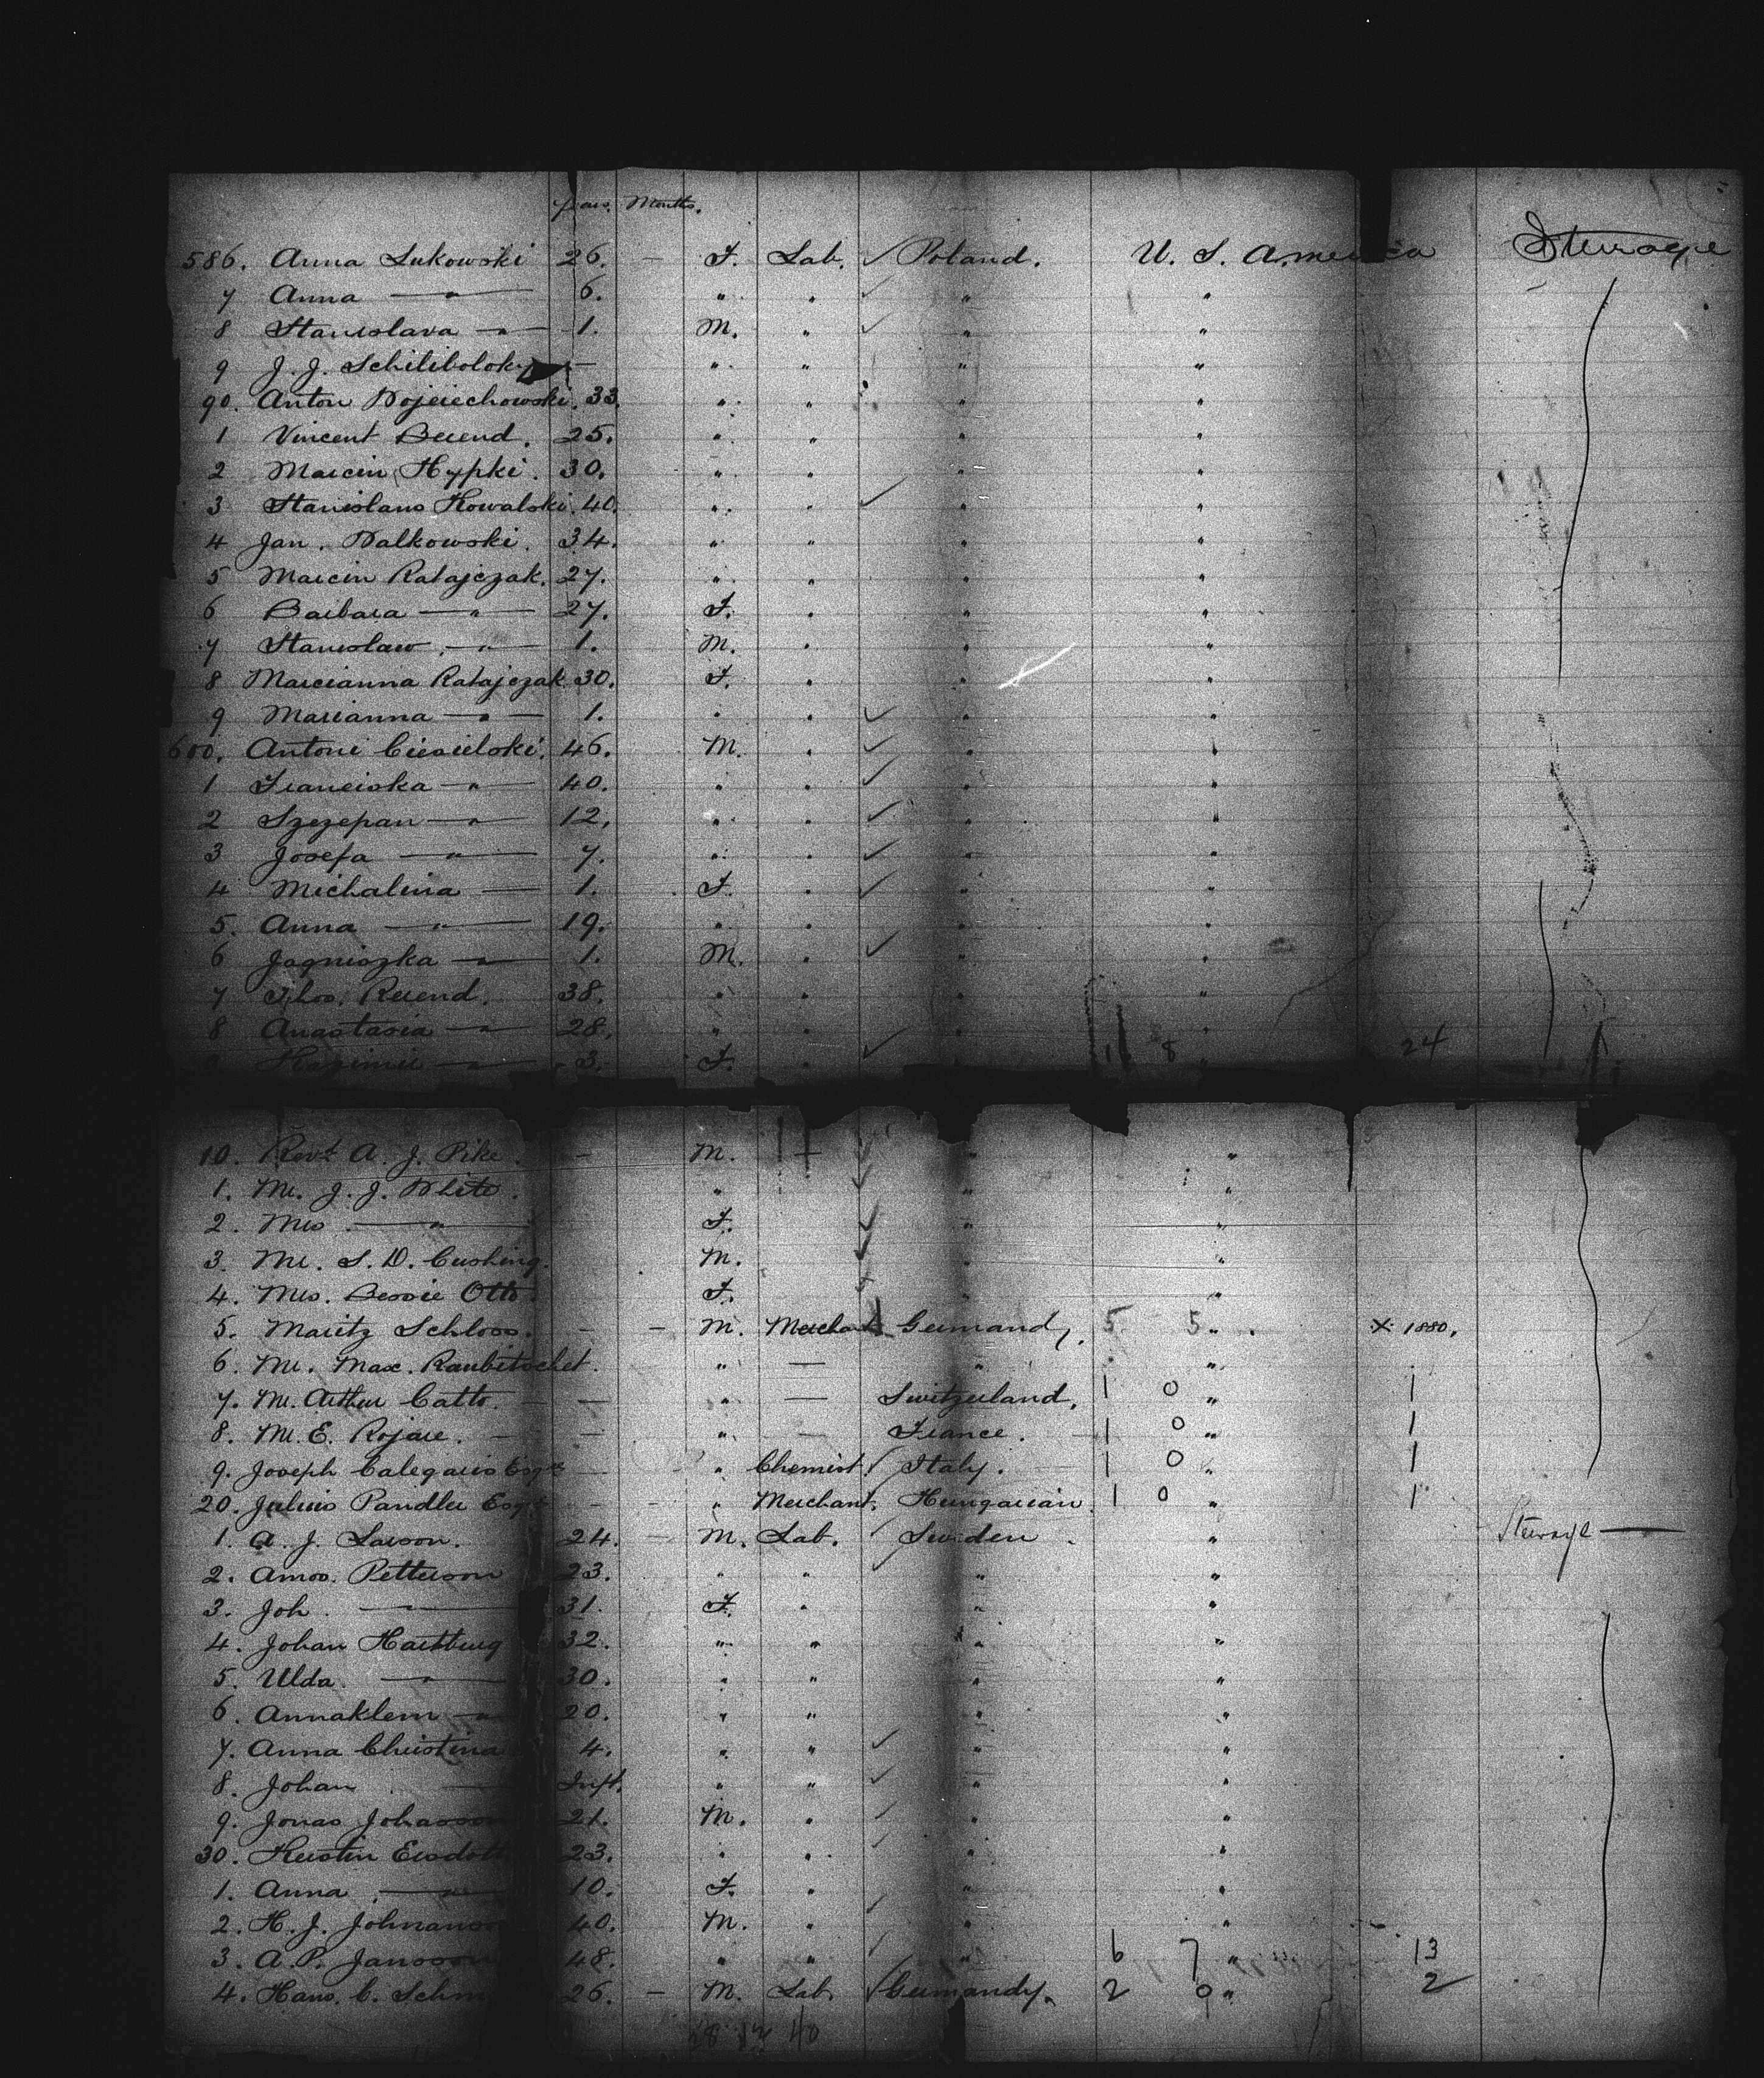 Years. Months.
586. Anna Lukowski 26. — F. Lab. ✓ Poland. U. S. America Steerage
7 Anna — " — 6. " " ✓ " "
8 Stanislava — " — 1. M. " ✓ " "
9 J. J. — " " " "
90. Anton Wojciechowski. 33. " " " "
1 Vincent Berend. 25. " " " "
2 Marcin Hypki. 30. " " " "
3 Stanislaus Kowalski. 40. " " ✓ " "
4 Jan. Walkowski. 34. " " " "
5 Marcin Ratajczak. 27. " " " "
6 Barbara — " — 27. F. " " "
7 Stanislaw. — " — 1. M. " " "
8 Marcianna Ratajczak 30. F. " " "
9 Marianna — " — 1. " " ✓ " "
600. Antoni Ciesielski. 46. M. " ✓ " "
1 Franciska — " — 40. " " ✓ " "
2 Szczepan — " — 12. " " ✓ " "
3 Josefa — " — 7. " " ✓ " "
4 Michalina — 1. F. " ✓ " "
5. Anna — " — 19. " " " "
6 Jagniszka — " — 1. M. " ✓ " "
7 Thos. Rerend. 38. " " " "
8 Anastasia — " — 28. " " " "
Kazimir — " — 3. F. " ✓ " 16 8 " 24
10. Revd A. J. Pike. — M. ✓ " "
1. Mr. J. J. White. " ✓ " "
2. Mrs. — " — F. ✓ " "
3. Mr. S. D. Cushing. M. ✓ " "
4. Mrs. Bessie Otto. F. " "
5. Maritz Schloss. — — M. Merchant Germandy. 5 5 " X 1880.
6. Mr. Max. Raubitschet. " — " "
7. Mr. Arthur Catto. — — " — Switzerland. 1 0 " 1
8. Mr. E. Rojare. — — " — France. 1 0 " 1
9. Joseph Calegaris Esqre — " Chemist. ✓ Italy. 1 0 " 1
20. Julius Pandler Esqre — — " Merchant. Hungarian. 1 0 " 1
1. A. J. Larson. 24. — M. Lab. ✓ Sweden. " Steerage —
2. Amos. Petterson 23. " " ✓ " "
3. Joh. — 31. F. " " "
4. Johan 32. " " " "
5. Ulda. — " — 30. " " " "
6. Annaklem — " 20. " " " "
7. Anna Christina 4. " " ✓ " "
8. Johan — Inft. " " ✓ " "
9. Jonas Johasson 21. M. " ✓ " "
30. Kerstin 23. " " ✓ " "
1. Anna. — " — 10. F. " " "
2. H. J. Johnanson 40. M. " ✓ " "
3. A. P. Jansson 48. " " ✓ " 6 7 " 13
4. Hans. C. Schm 26. — M. Lab. ✓ Germandy. 2 0 " 2
28 12 40